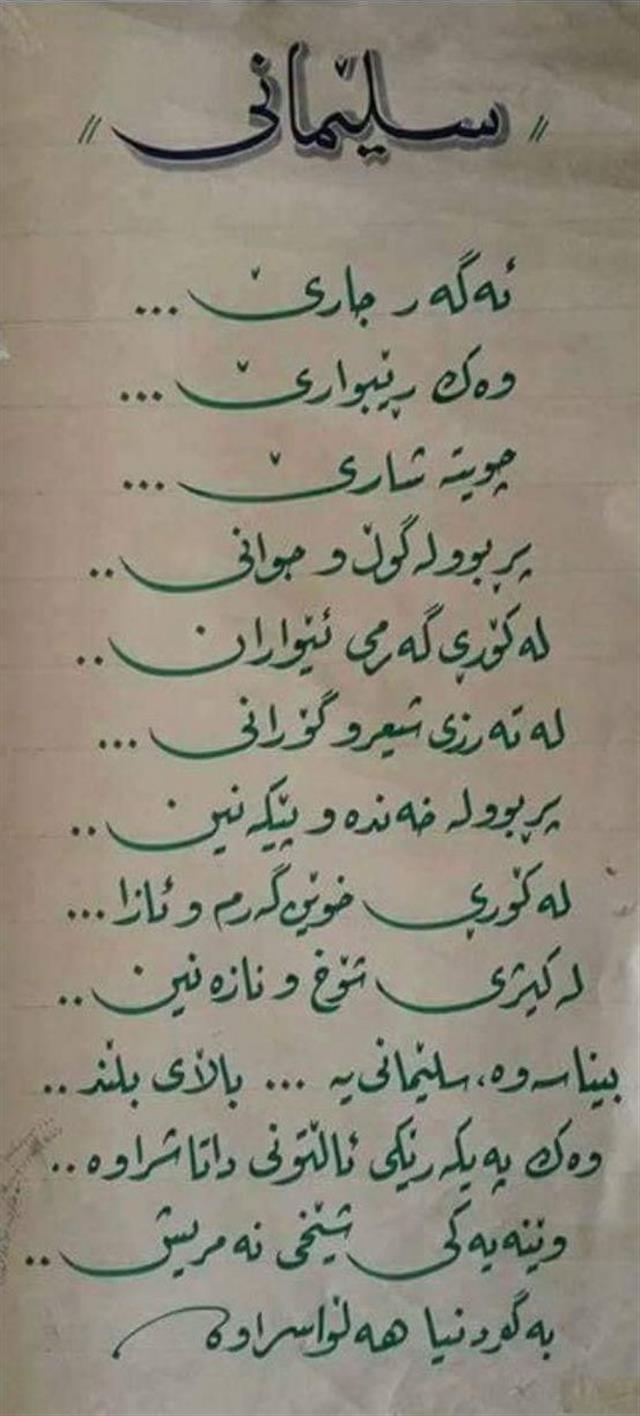 "سلێمانی"
ئەگەر جارێ ...
وەک ڕێبوارێ ...
چویتە شارێ ...
پڕ بوو لە گوڵ و جوانی ..
لە کۆڕی گەرمی ئێواران ..
لە تەرزی شیعر و گۆرانی ...
پڕ بوو لە خەندە و پێکەنین ..
لە کوڕی خوێن گەرم و ئازا ...
لە کیژی شۆخ و نازەنین ..
بیناسەوە، سلێمانی یە ... باڵای بڵند ..
وەک پەیکەرێکی ئاڵتونی داتاشراوە ..
وێنەیەکی شێخی نەمریش ..
بە گەردنیا هەڵواسراوە